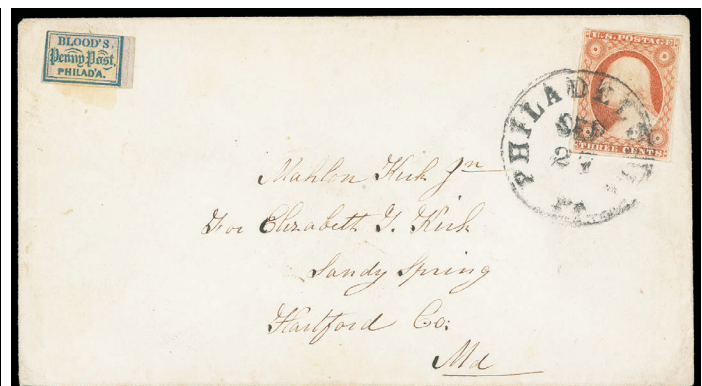 BLOOD'S
Penny Post,
PHILAD'A.
U.S. POSTAGE
THREE CENTS
PHILADEL
SEP
27
Mahlon Kirk Jr
For Elizabeth T. Kirk
Sandy Spring
Hartford Co:
Md